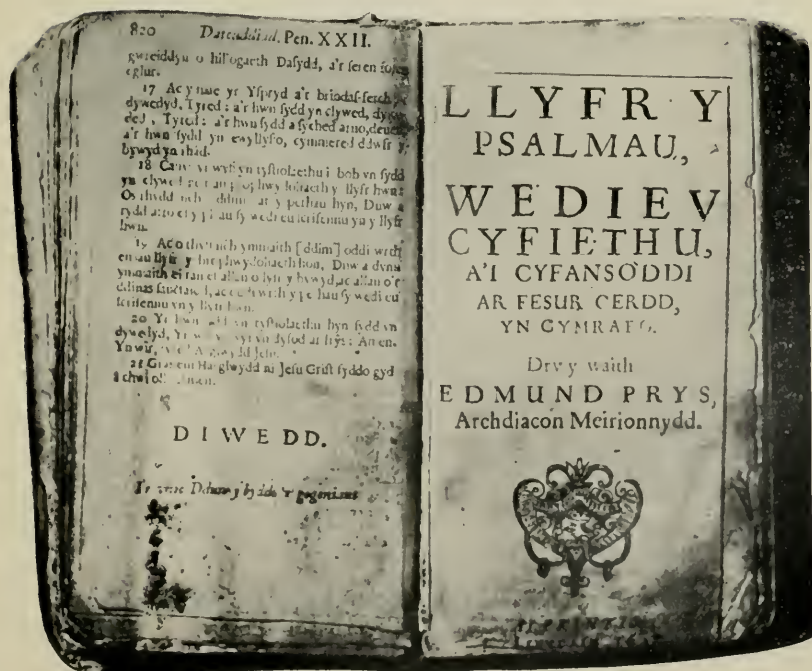 820 Datcuddiad. Pen. XXII.
gwreiddyn o hiliogaeth Dafydd, a'r seren
eglur.
17 Ac y mae yr Yspryd a'r briodas-ferch yn
dywedyd, Tyred: a'r hwn sydd yn clywed,
ded, Tyred: a'r hwn sydd a syched arno, deued
a'r hwn sydd yn ewyllysio, cymmered ddwfr y
bywyd yn rhâd.
18 Canys yr wyf yn tystiolaethu i bob vn sydd
yn clywed y llyfr hwn:
Os rhydd neb ddim at y pethau hyn, Duw a
rydd atto ef y sy wedi eu scrifennu yn y llyfr
hwn.
19 Ac o thynn neb ymmaith [ddim] oddi wrth
y brophwydoliaeth hon, Duw a dynn
ymmaith ei ran ef allan o lyfr y bywyd, ac allan o'r
ddinas sanctaidd, ac oddi wrth y pethau sy wedi eu
scrifennu yn y llyfr hwn.
20 Yr hwn sydd yn tystiolaethu hyn sydd yn
dywedyd, yn dyfod ar frys: Amen.
Yn wir,
21 Gras ein Harglwydd ni Jesu Grist fyddo gyd
â chwi oll. Amen.
DIWEDD.
I'r Duw y byddo 'r gogoniant
LLYFR Y
PSALMAU,
WEDIEV
CYFIETHU,
A'I CYFANSODDI
AR FESUR CERDD,
YN GYMRAEG.
Drwy waith
EDMUND PRYS,
Archdiacon Meirionnydd.